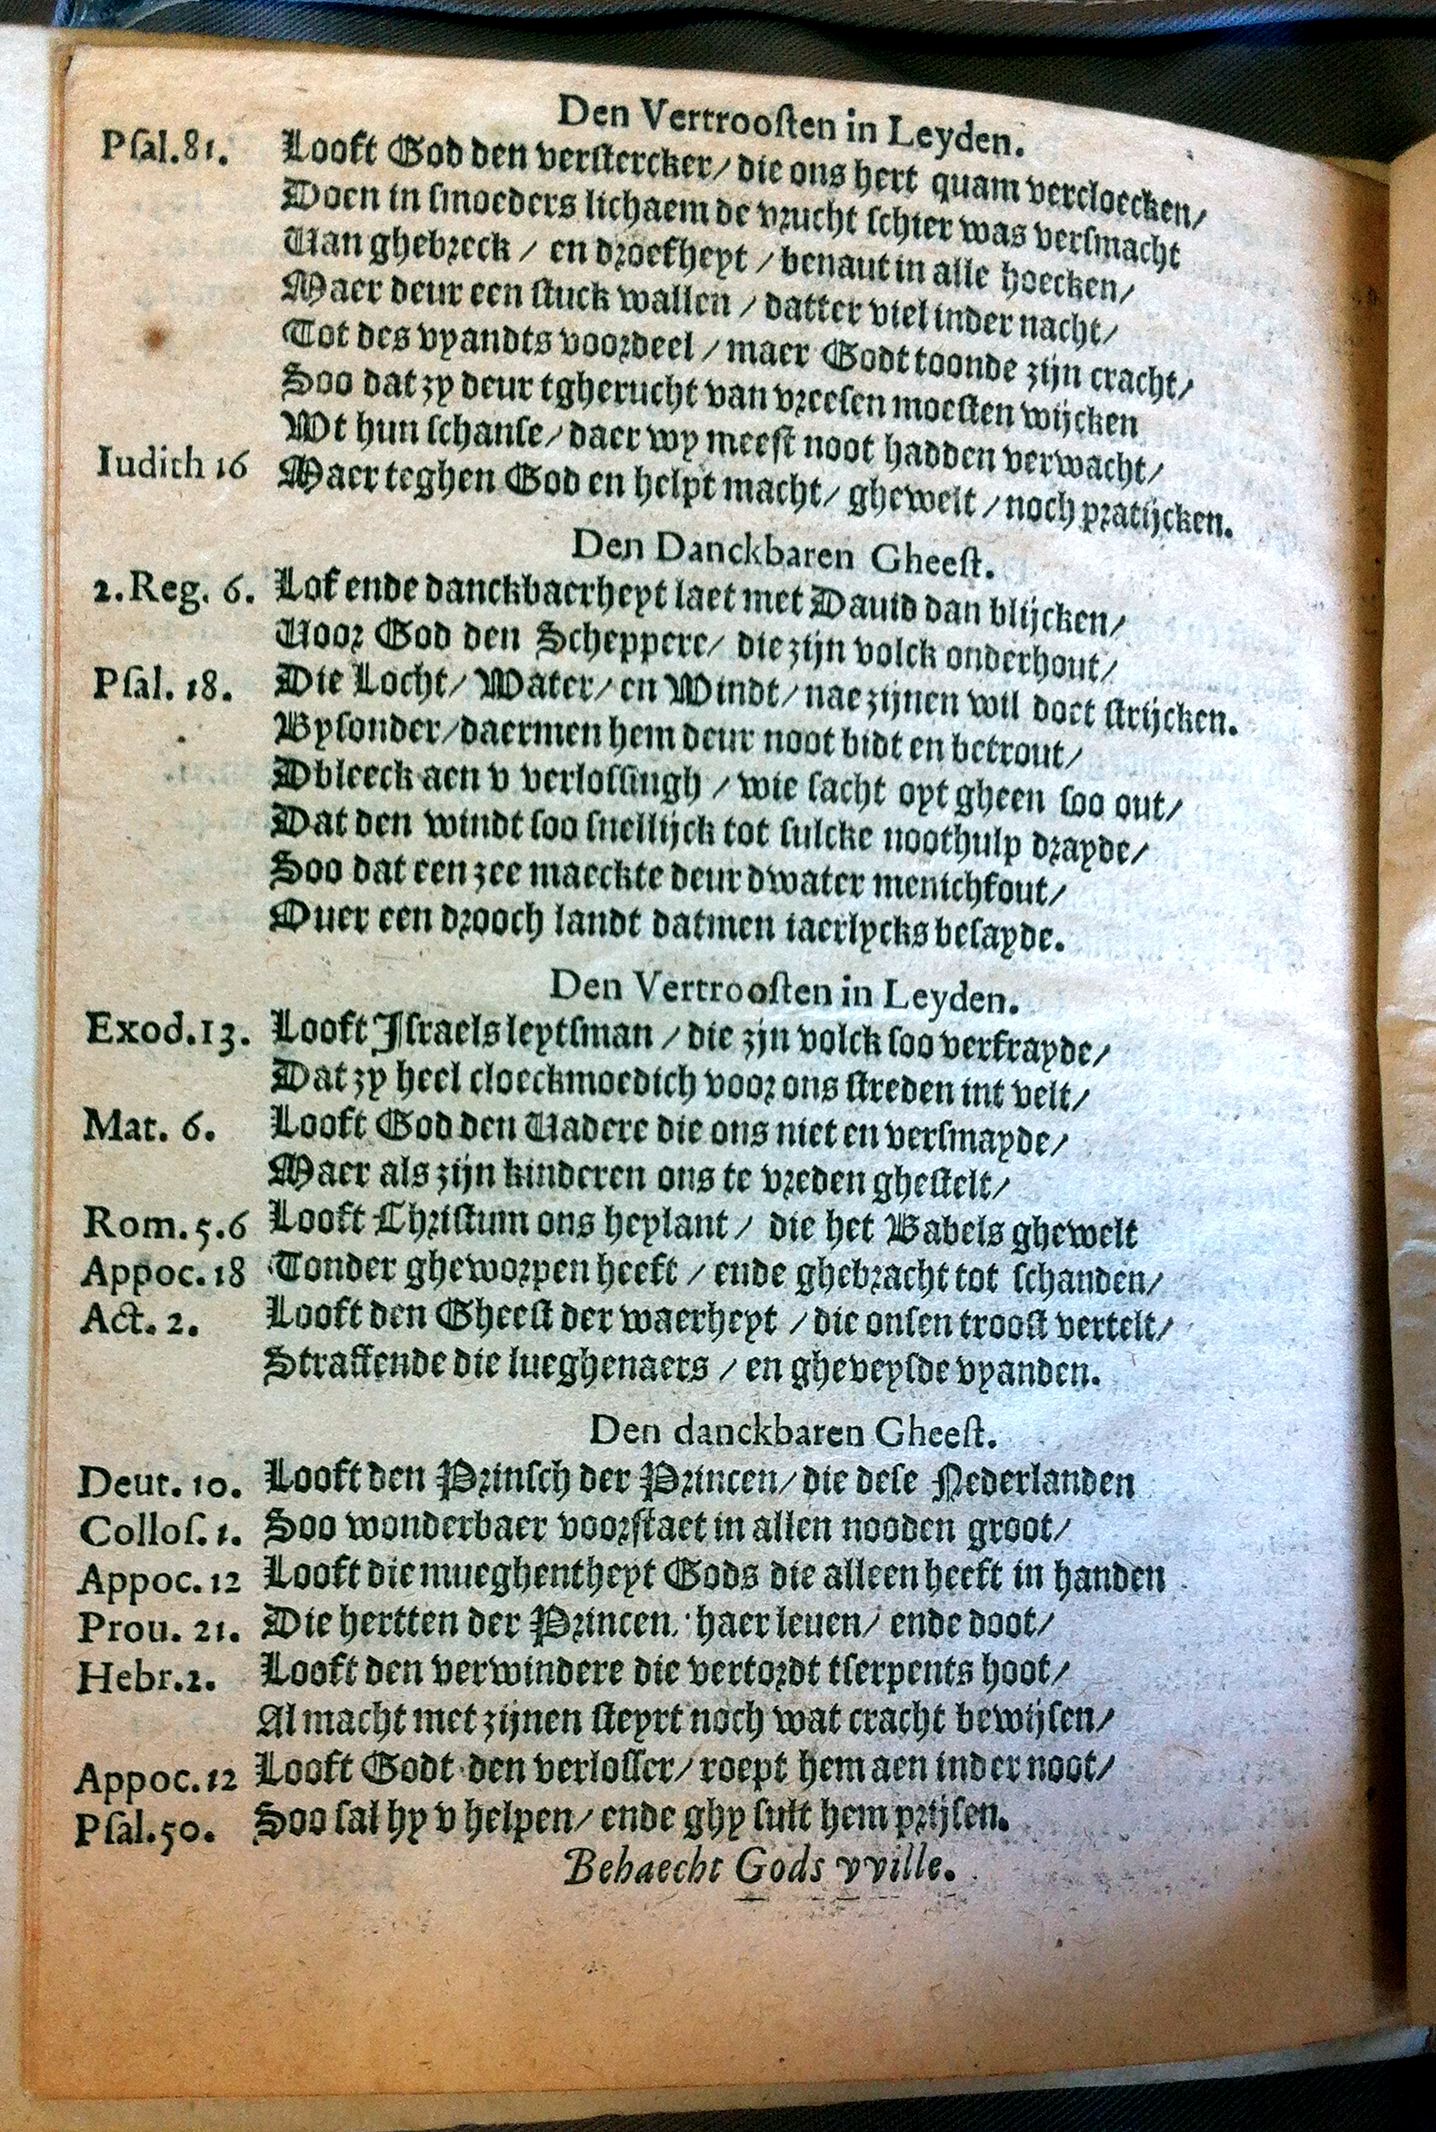 Den Vertrooſten in Leyden.
Pſal.81. Looft God den verſtercker/ die ons hert quam vercloecken/
Doen in ſmoeders lichaem de vrucht ſchier was verſmacht
Van ghebreck / en droefheyt / benaut in alle hoecken/
Maer deur een ſtuck wallen / datter viel inder nacht/
Tot des vyandts voordeel / maer Godt toonde zijn cracht/
Soo dat zy deur tgherucht van vreeſen moeſten wijcken
Wt hun ſchanſe/ daer wy meeſt noot hadden verwacht/
Iudith 16 Maer teghen God en helpt macht/ ghewelt / noch pratijcken.
Den Danckbaren Gheeſt.
2.Reg. 6. Lof ende danckbaerheyt laet met Dauid dan blijcken/
Voor God den Scheppere/ die zijn volck onderhout/
Pſal. 18. Die Locht/ Water/ en Windt/ nae zijnen wil doet ſtrijcken.
Byſonder/ daermen hem deur noot bidt en betrout/
Dbleeck aen v verloſſingh / wie ſacht oyt gheen ſoo out/
Dat den windt ſoo ſnellijck tot ſulcke noothulp drayde/
Soo dat een zee maeckte deur dwater menichfout/
Ouer een drooch landt datmen iaerlycks beſayde.
Den Vertrooſten in Leyden.
Exod.13. Looft Iſraels leytſman / die zjn volck ſoo verfrayde/
Dat zy heel cloeckmoedich voor ons ſtreden int velt/
Mat. 6. Looft God den Vadere die ons niet en verſmayde/
Maer als zijn kinderen ons te vreden gheſtelt/
Rom.5.6 Looft Chriſtum ons heylant / die het Babels ghewelt
Appoc.18 Tonder gheworpen heeft / ende ghebracht tot ſchanden/
Act. 2. Looft den Gheeſt der waerheyt / die onſen trooſt vertelt/
Straffende die lueghenaers / en gheveyſde vyanden.
Den danckbaren Gheeſt.
Deut. 10. Looft den Prinſch der Princen/ die deſe Nederlanden
Colloſ.1. Soo wonderbaer voorſtaet in allen nooden groot/
Appoc.12 Looft die mueghentheyt Gods die alleen heeft in handen
Prou. 21. Die hertten der Princen/ haer leuen/ ende doot/
Hebr.2. Looft den verwindere die vertordt tſerpents hoot/
Al macht met zijnen ſteyrt noch wat cracht bewijſen/
Appoc.12 Looft Godt den verloſſer/ roept hem aen inder noot/
Pſal.50. Soo ſal hy v helpen/ ende ghy ſult hem prijſen.
Behaecht Gods vville.